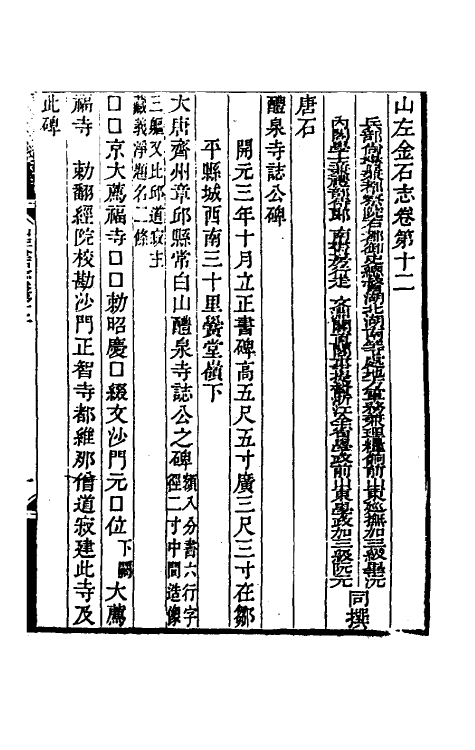 山左金石志卷第十二
兵部尚書兼都察院右都御史總督湖北湖南等處地方軍務兼理糧餉前山東巡撫加三級畢沅
內閣學士兼禮部侍郎 南書房行走 文淵閣直閣事提督浙江全省學政前山東學政加三級阮元
同撰
唐石
醴泉寺誌公碑
開元三年十月立正書碑高五尺五寸廣三尺三寸在鄒
平縣城西南三十里黌堂嶺下
大唐齊州章邱縣常白山醴泉寺誌公之碑額八分書六行字徑二寸中間造像
三軀又比邱道寂主藏義淨題名二條
□□京大薦福寺□□勅昭慶□綴文沙門元□位下闕大薦
福寺 勅翻經院校勘沙門正智寺都維那僧道寂建此寺及
此碑